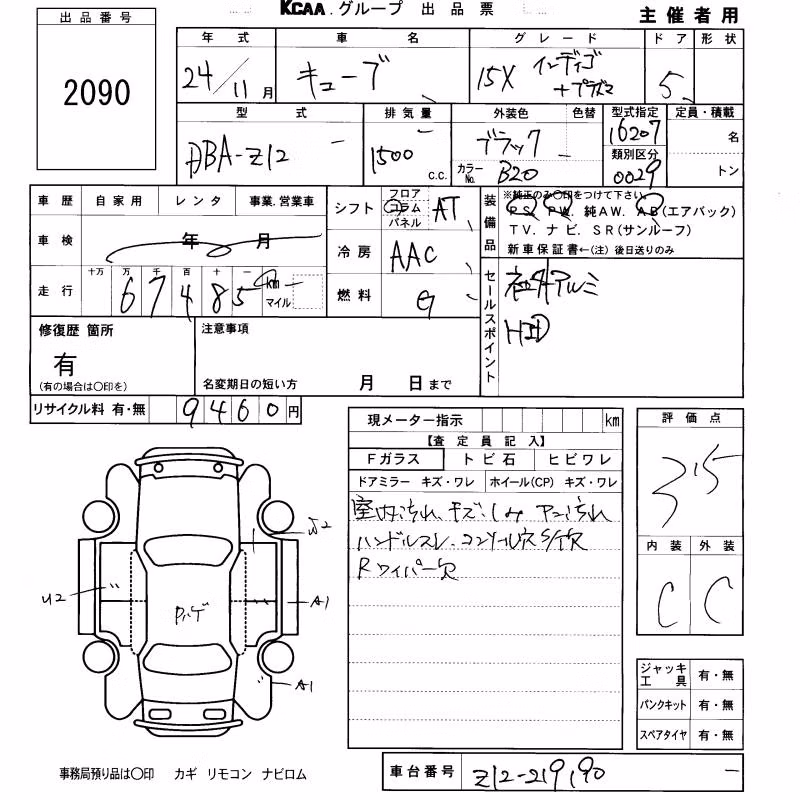 KCAA.グループ 出品票
主催者用
出品番号
2090
年式 車名 グレード ドア 形状
24/11月 キューブ 15X インディゴ+プラズマ 5
型式 排気量 外装色 色替 型式指定 定員・積載
DBA-Z12 1500 c.c. ブラック 16207 名
カラーNo. B20 類別区分 0029 トン
車歴 自家用 レンタ 事業.営業車
シフト フロア コラム パネル AT
装備品 ※純正のみ〇印をつけて下さい
PS. PW. 純AW. AB(エアバック)
TV. ナビ. SR(サンルーフ)
新車保証書←(注)後日送りのみ
車検 年 月
冷房 AAC
走行 十万 万 千 百 十 一
67485 km マイル
燃料 G
セールスポイント
社外アルミ
HID
修復歴 箇所
有
(有の場合は〇印を)
注意事項
名変期日の短い方 月 日まで
リサイクル料 有・無 9460円
現メーター指示 km
【査定員記入】
Fガラス トビ石 ヒビワレ
ドアミラー キズ・ワレ ホイール(CP) キズ・ワレ
室内汚れ、キズ.しみ
ハンドルスレ.コンソール穴
Rワイパー欠
評価点
3.5
内装 外装
C C
U2
A1
A1
ジャッキ 工具 有・無
パンクキット 有・無
スペアタイヤ 有・無
事務局預り品は〇印 カギ リモコン ナビロム
車台番号 Z12-219190